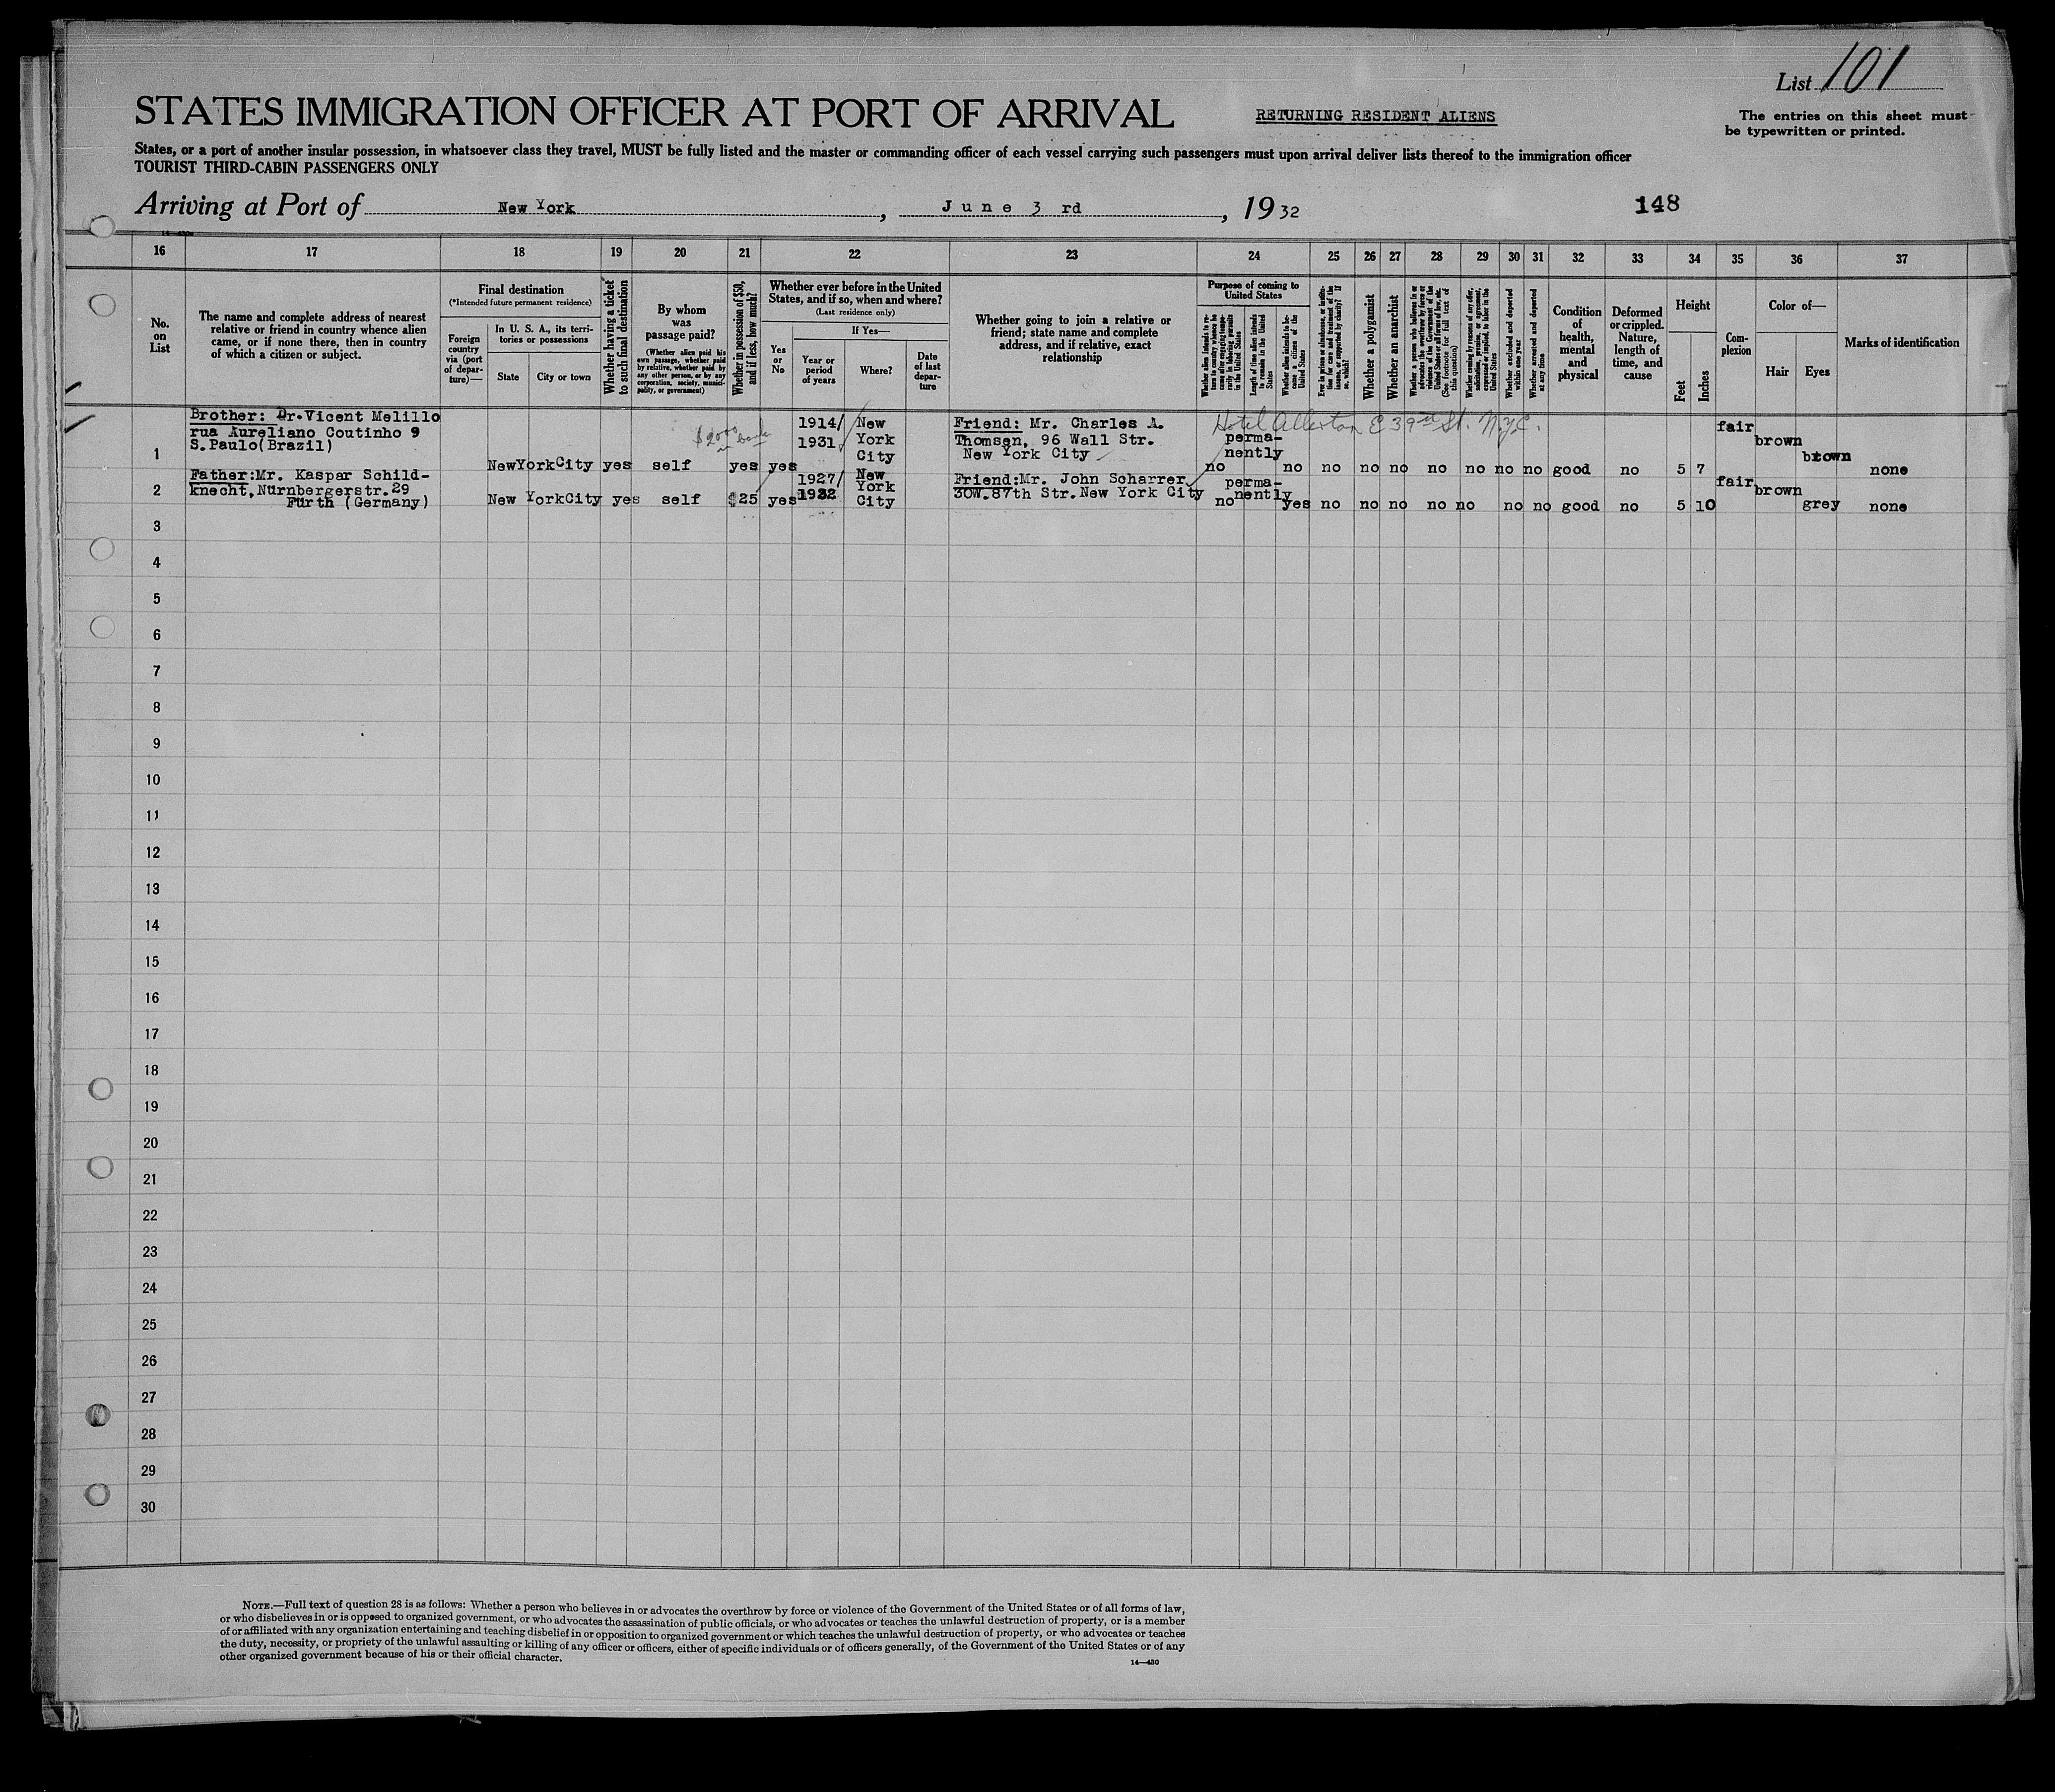 List 101
STATES IMMIGRATION OFFICER AT PORT OF ARRIVAL
RETURNING RESIDENT ALIENS
The entries on this sheet must
be typewritten or printed.
States, or a port of another insular possession, in whatsoever class they travel, MUST be fully listed and the master or commanding officer of each vessel carrying such passengers must upon arrival deliver lists thereof to the immigration officer
TOURIST THIRD-CABIN PASSENGERS ONLY
Arriving at Port of New York, June 3 rd, 19 32
148
16 17 18 19 20 21 22 23 24 25 26 27 28 29 30 31 32 33 34 35 36 37
No. on List
The name and complete address of nearest
relative or friend in country whence alien
came, or if none there, then in country
of which a citizen or subject.
Final destination
(*Intended future permanent residence)
Foreign country via (port of departure)—
In U. S. A., its territories or possessions
State
City or town
Whether having a ticket to such final destination
By whom was passage paid?
(Whether alien paid his own passage, whether paid by relative, whether paid by any other person, or by any corporation, society, municipality, or government)
Whether in possession of $50, and if less, how much?
Whether ever before in the United
States, and if so, when and where?
(Last residence only)
Yes or No
If Yes—
Year or period of years
Where?
Date of last departure
Whether going to join a relative or
friend; state name and complete
address, and if relative, exact
relationship
Purpose of coming to United States
Whether alien intends to return to country whence he came after engaging temporarily in laboring pursuits in the United States
Length of time alien intends to remain in the United States
Whether alien intends to become a citizen of the United States
Ever in prison or almshouse, or institution for care and treatment of the insane, or supported by charity? If so, which?
Whether a polygamist
Whether an anarchist
(See footnote for full text of this question)
Whether excluded and deported within one year
Whether arrested and deported at any time
Condition of health, mental and physical
Deformed or crippled. Nature, length of time, and cause
Height
Feet
Inches
Complexion
Color of—
Hair
Eyes
Marks of identification
Brother: Dr.Vicent Melillo
rua Aureliano Coutinho 9
S.Paulo(Brazil)
1 NewYorkCity yes self yes yes 1914/ 1931 New York City
Friend: Mr. Charles A.
Thomsen, 96 Wall Str.
New York City
Hotel Allerton E 39th St. N.Y.C.
no permanently no no no no no no no no good no 5 7 fair brown brown none
Father:Mr. Kaspar Schild-
knecht,Nürnbergerstr.29
Fürth (Germany)
2 New YorkCity yes self $25 yes 1927/ 1932 New York City
Friend:Mr. John Scharrer
30W.87th Str.New York City
no permanently yes no no no no no no no good no 5 10 fair brown grey none
3
4
5
6
7
8
9
10
11
12
13
14
15
16
17
18
19
20
21
22
23
24
25
26
27
28
29
30
NOTE.—Full text of question 28 is as follows: Whether a person who believes in or advocates the overthrow by force or violence of the Government of the United States or of all forms of law,
or who disbelieves in or is opposed to organized government, or who advocates the assassination of public officials, or who advocates or teaches the unlawful destruction of property, or is a member
of or affiliated with any organization entertaining and teaching disbelief in or opposition to organized government or which teaches the unlawful destruction of property, or who advocates or teaches
the duty, necessity, or propriety of the unlawful assaulting or killing of any officer or officers, either of specific individuals or of officers generally, of the Government of the United States or of any
other organized government because of his or their official character.
14—430